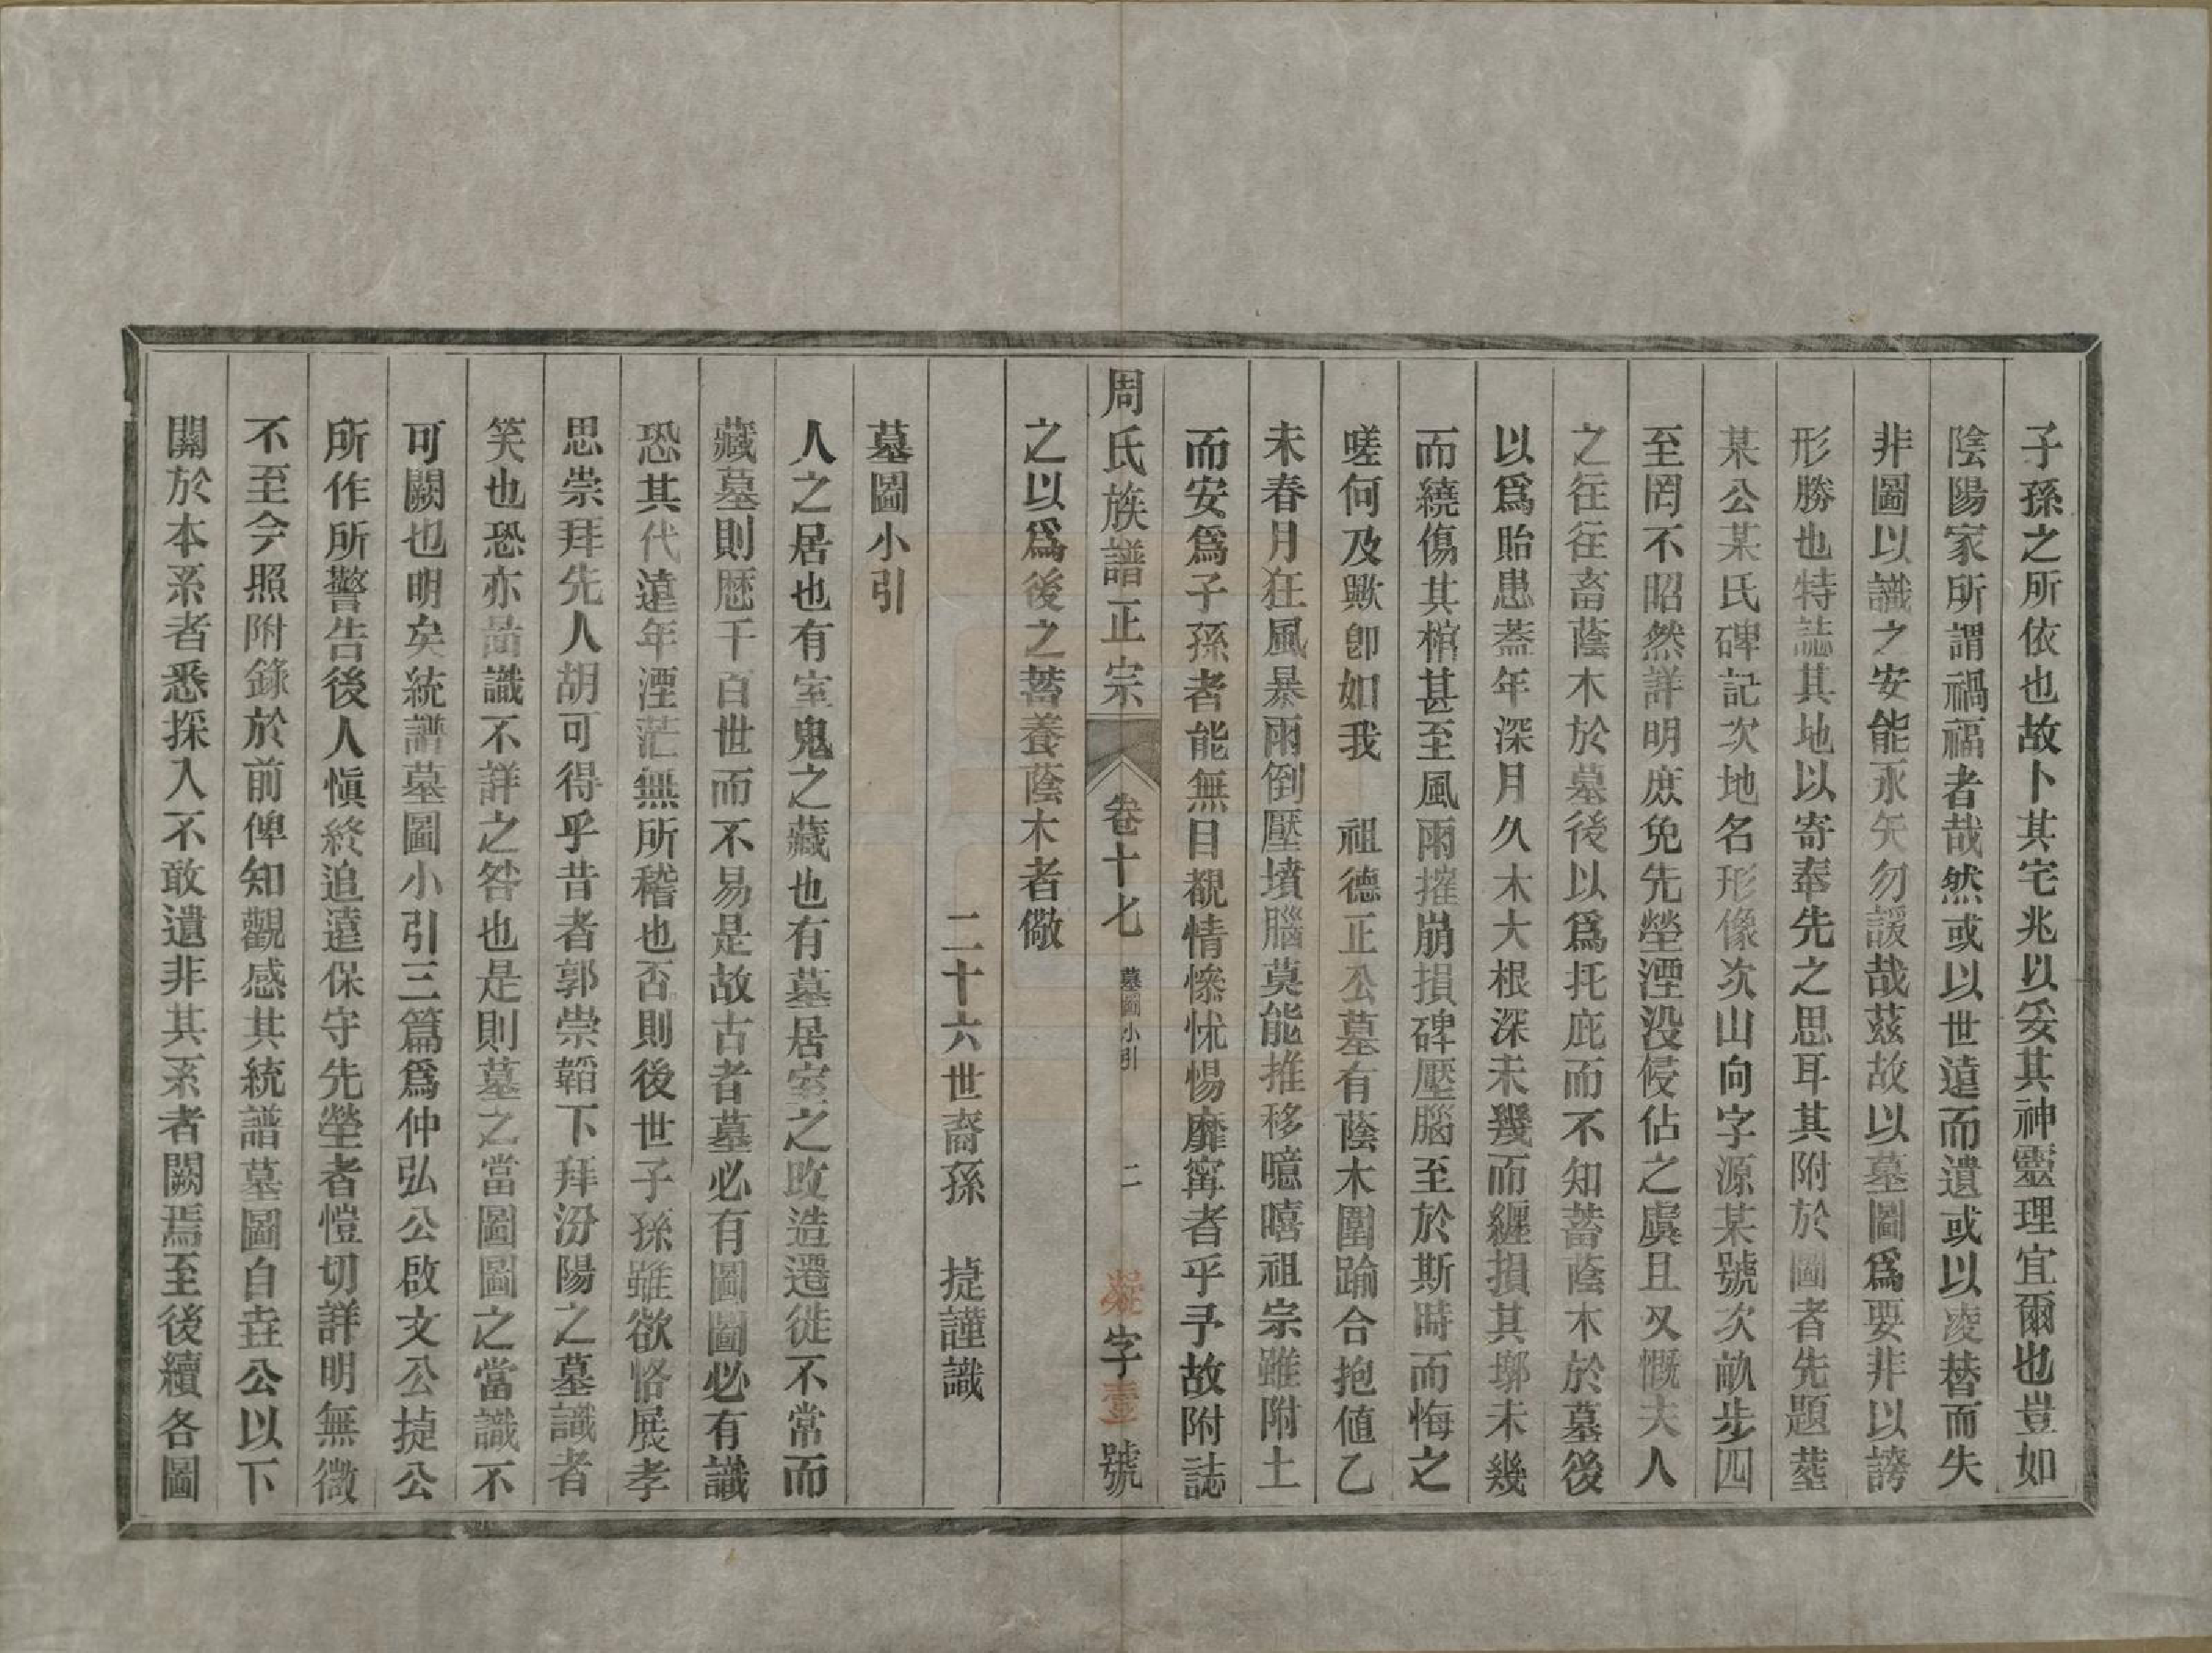 子孫之所依也故卜其宅兆以妥其神靈理宜爾也豈如
陰陽家所謂禍福者哉然或以世遠而遺或以凌替而失
非圖以識之安能永矢勿諼哉茲故以墓圖爲要非以誇
形勝也特誌其地以寄奉先之思耳其附於圖者先題墓
某公某氏碑記次地名形像次山向字源某號次畝步四
至罔不昭然詳明庶免先塋湮没侵佔之虞且又慨夫人
之往往畜蔭木於墓後以爲托庇而不知蓄蔭木於墓後
以爲貽患葢年深月久木大根深未幾而纏損其塚未幾
而繞傷其棺甚至風雨摧崩損碑壓腦至於斯時而悔之
嗟何及歟卽如我 祖德正公墓有蔭木圍踰合抱値乙
未春月狂風暴雨倒壓墳腦莫能推移噫嘻祖宗雖附土
而安爲子孫者能無目覩情慘怵惕靡寗者乎予故附誌
周氏族譜正宗 卷十七 墓圖小引 二 凝字壹號
之以爲後之蓄養蔭木者儆
二十六世裔孫 㨗謹識
墓圖小引
人之居也有室鬼之藏也有墓居室之攺造遷徙不常而
藏墓則歴千百世而不易是故古者墓必有圖圖必有識
恐其代遠年湮茫無所稽也否則後世子孫雖欲恪展孝
思崇拜先人胡可得乎昔者郭崇韜下拜汾陽之墓識者
笑也恐亦啚識不詳之咎也是則墓之當圖圖之當識不
可闕也明矣統譜墓圖小引三篇爲仲弘公啟文公㨗公
所作所警告後人愼終追遠保守先塋者愷切詳明無微
不至今照附錄於前俾知觀感其統譜墓圖自垚公以下
關於本系者悉採入不敢遺非其系者闕焉至後續各圖